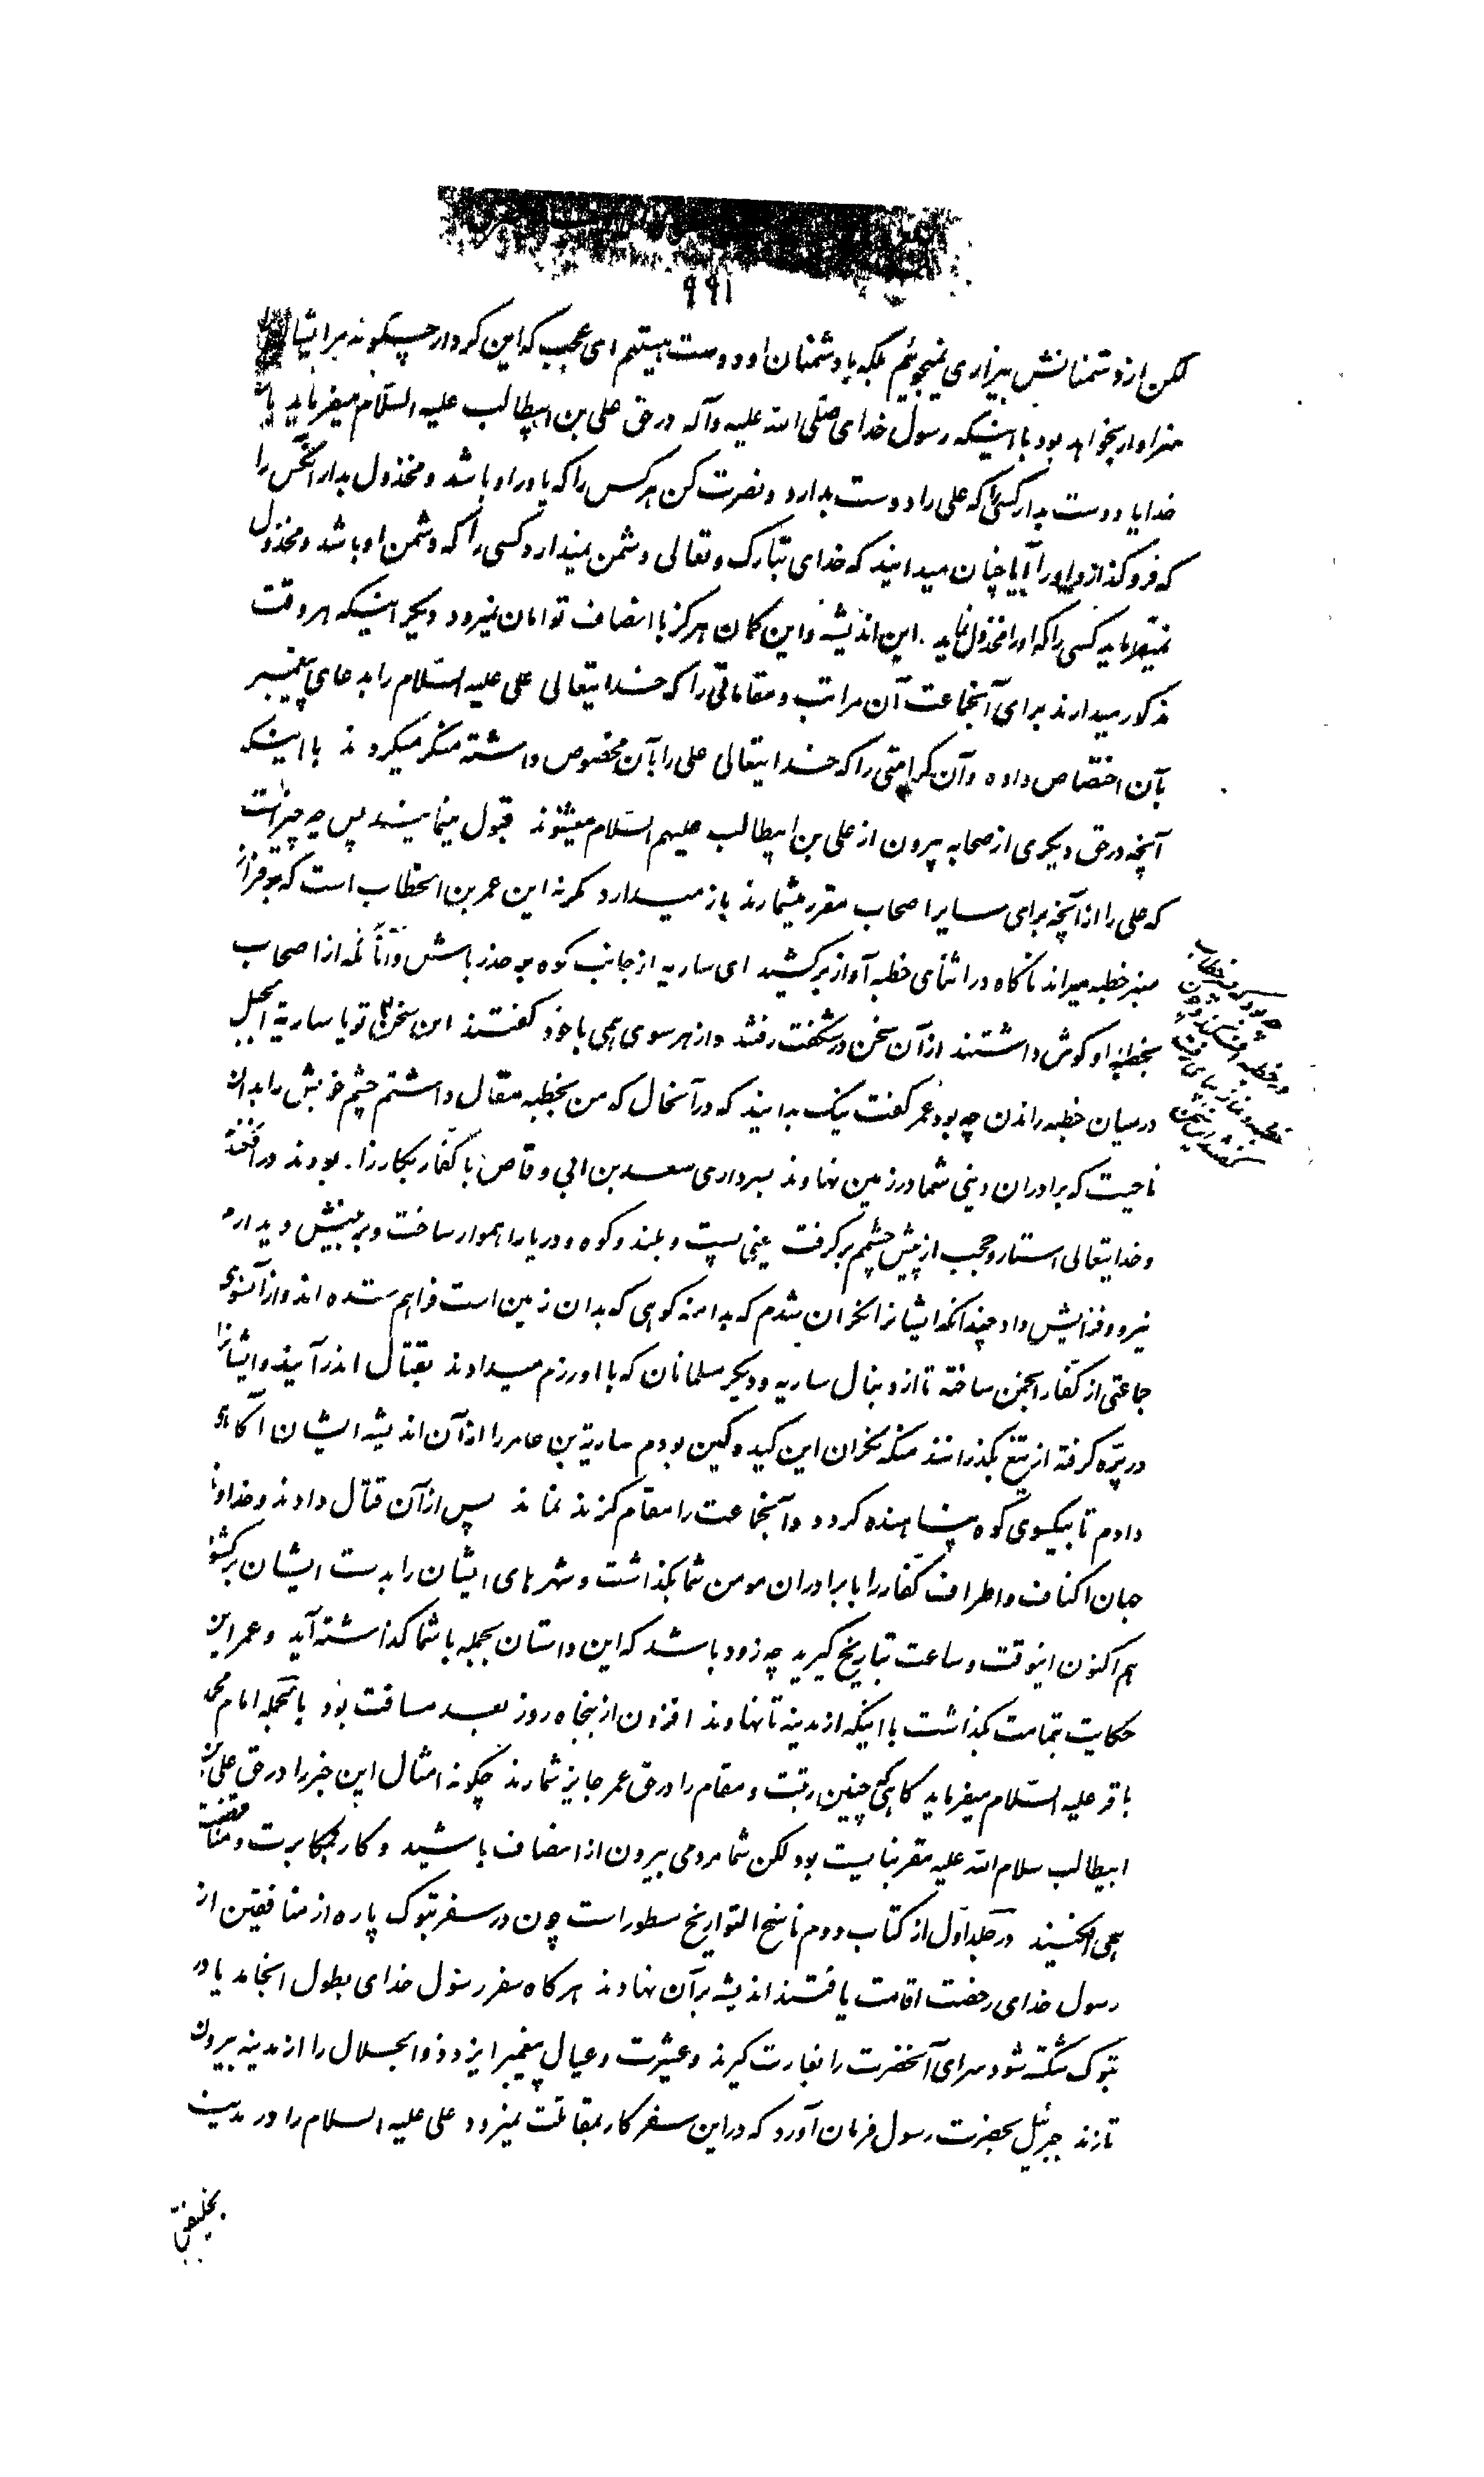 ۹۹۱
لکن از دشمنانش بیزاری نمیجوئیم بلکه با دشمنان او دوست هستیم ای عجب که این کردار چگونه برایشان
سزاوار بخواهد بود با اینکه رسول خدای صلّی الله علیه وآله در حق علی بن ابیطالب علیه السّلام میفرماید بار
خدایا دوست بدار کسیرا که علی را دوست بدارد و نصرت کن هرکس را که یاور او باشد و مخذول بدار آنکس را
که فرو گذارد او را آیا چنان میدانید که خدای تبارک وتعالی دشمن نمیدارد کسی را که دشمن او باشد و مخذول
نمیفرماید کسی را که او را مخذول نماید . این اندیشه و این کمان هرکز با انصاف توامان نمیرود دیکر اینکه هر وقت
مذکور میدارند برای آنجماعت آن مراتب و مقاماتی را که خدایتعالی علی علیه السّلام را بدعای پیغمبر
بآن اختصاص داده و آن کرامتی را که خدایتعالی علی را بآن مخصوص داشته منکر میکردند با اینکه
آنچه در حق دیکری از صحابه بیرون از علی بن ابیطالب علیهم السّلام میشنوند قبول مینمایند پس چه چیز است
که علی را از آنچه برای سایر اصحاب مقرر میشمارند باز میدارد مکر نه این عمر بن الخطاب است که بر فراز
منبر خطبه میراند ناکاه در اثنای خطبه آواز برکشید ای ساریه از جانب کوه بر حذر باش و آنانکه از اصحاب
بخطبه او کوش داشتند از آن سخن در شکفت رفتند و از هر سوی همی با خود کفتند این سخن تو یا ساریة الجبل
در میان خطبه راندن چه بود عمر کفت نیک بدانید که در آنحال که من بخطبه مقال داشتم چشم خویش را بدان
ناحیت که برادران دینی شما در زمین نهاوند بسرداری سعد بن ابی وقاص با کفار بکارزار بودند در افکندم
و خدایتعالی استار و حجب از پیش چشمم برکرفت یعنی پست و بلند و کوه و دریا را هموار ساخت و بر بینش دیدارم
نیرو و فزایش داد چندانکه ایشانرا نکران شدم که بدامنه کوهی که بدان زمین است فراهم شده اند و از آنسوی
جماعتی از کفار انجمن ساخته تا از دنبال ساریه و دیکر مسلمانان که با او رزم میدادند بقتال اندر آیند و ایشانرا
در پره کرفته از تیغ بکذرانند منکه نکران این کید و کین بودم ساریة بن عامر را از آن اندیشه ایشان آکاهی
دادم تا بیکسوی کوه پناهنده کردد و آنجماعت را مقام کزند نماند پس از آن قتال دادند و خداوند
جان اکناف و اطراف کفار را با برادران مومن شما بکذاشت و شهرهای ایشان را بدست ایشان برکشود
هم اکنون اینوقت و ساعت بتاریخ کیرید چه زود باشد که این داستان بجمله با شما کذاشته آید و عمر این
حکایت بتمامت بکذاشت با اینکه از مدینه تا نهاوند افزون از پنجاه روز بعد مسافت بود بالجمله امام محمد
باقر علیه السّلام میفرماید کاهی چنین رتبت و مقام را در حق عمر جایز شمارند چکونه امثال این خبر را در حق علی بن
ابیطالب سلام الله علیه مقر نبایست بود لکن شما مردمی بیرون از انصاف باشید و کار بمکابرت و مناقضت
همی افکنید در جلد اوّل از کتاب دوم ناسخ التواریخ مسطور است چون در سفر تبوک پاره از منافقین از
رسول خدای رخصت اقامت یافتند اندیشه بر آن نهادند هرکاه سفر رسول خدای بطول انجامد یا در
تبوک شکسته شود سرای آنحضرت را بغارت کیرند و عشیرت و عیال پیغمبر ایزد ذوالجلال را از مدینه بیرون
تازند جبرئیل بحضرت رسول فرمان آورد که در این سفر کار بمقاتلت نمیرود علی علیه السلام را در مدینه
بخلیفتی